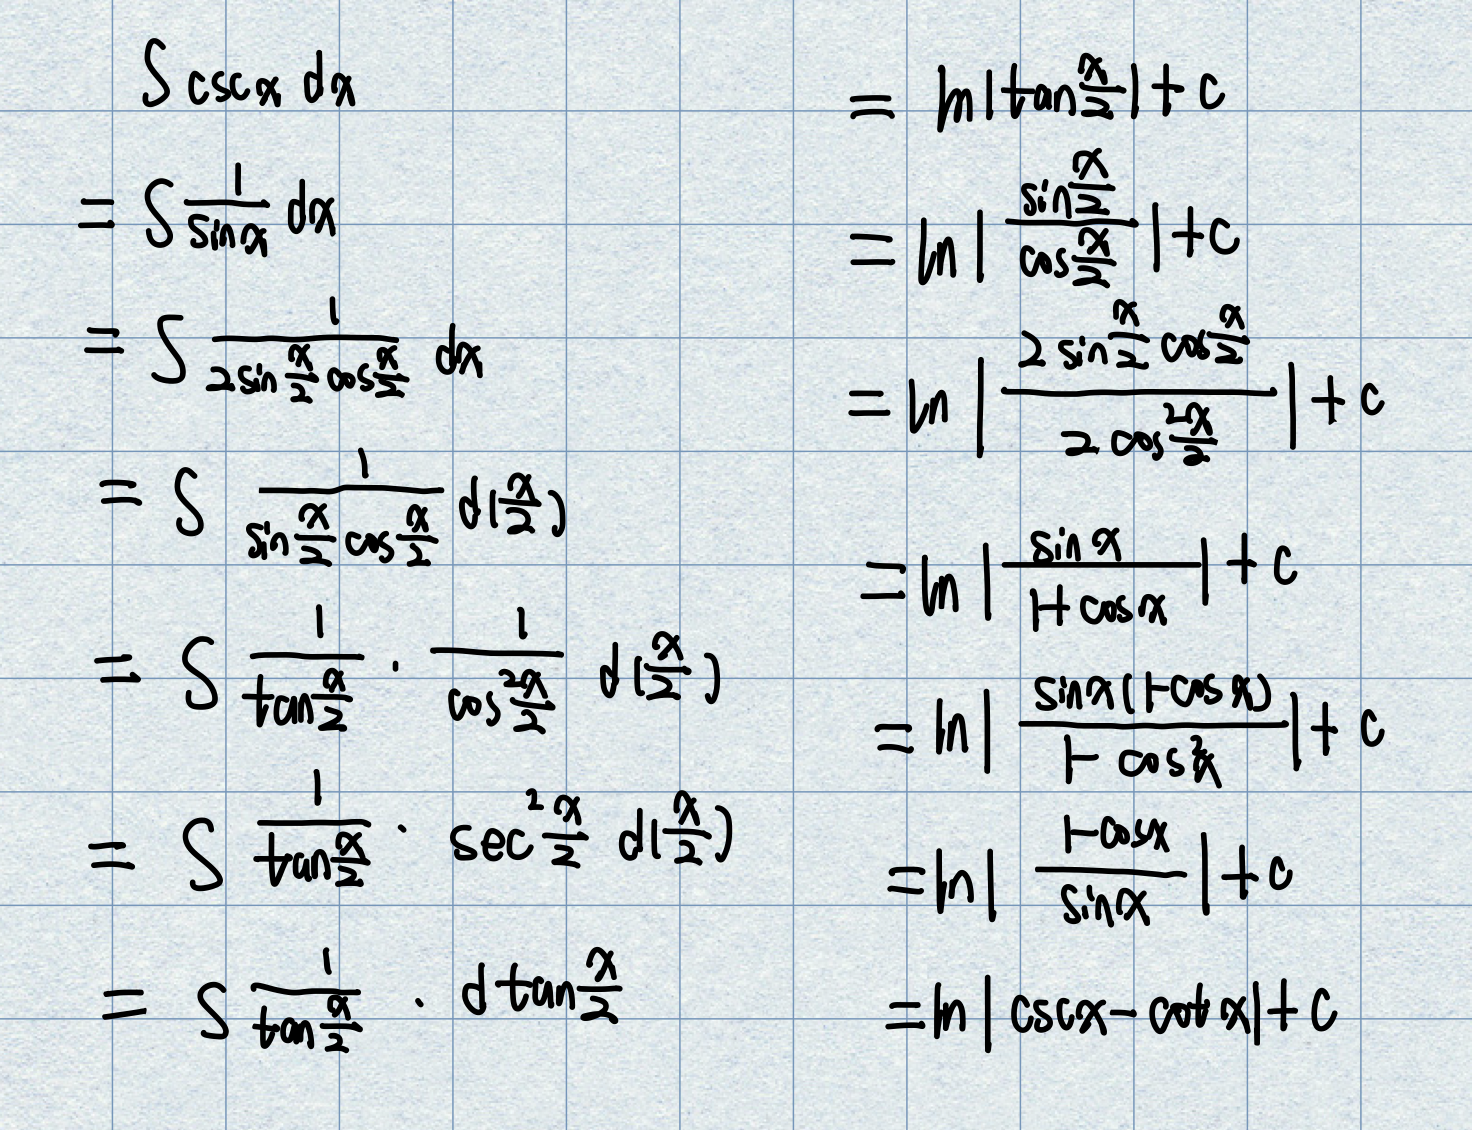 ∫ cscx dx
= ∫ 1/sinx dx
= ∫ 1/(2sin x/2 cos x/2) dx
= ∫ 1/(sin x/2 cos x/2) d(x/2)
= ∫ 1/(tan x/2) · 1/(cos² x/2) d(x/2)
= ∫ 1/(tan x/2) · sec² x/2 d(x/2)
= ∫ 1/(tan x/2) · d tan x/2
= ln|tan x/2| + c
= ln|(sin x/2)/(cos x/2)| + c
= ln|(2 sin x/2 cos x/2)/(2 cos² x/2)| + c
= ln|sin x/(1+cosx)| + c
= ln|sinx(1-cosx)/(1-cos²x)| + c
= ln|(1-cosx)/sinx| + c
= ln|cscx-cotx| + c